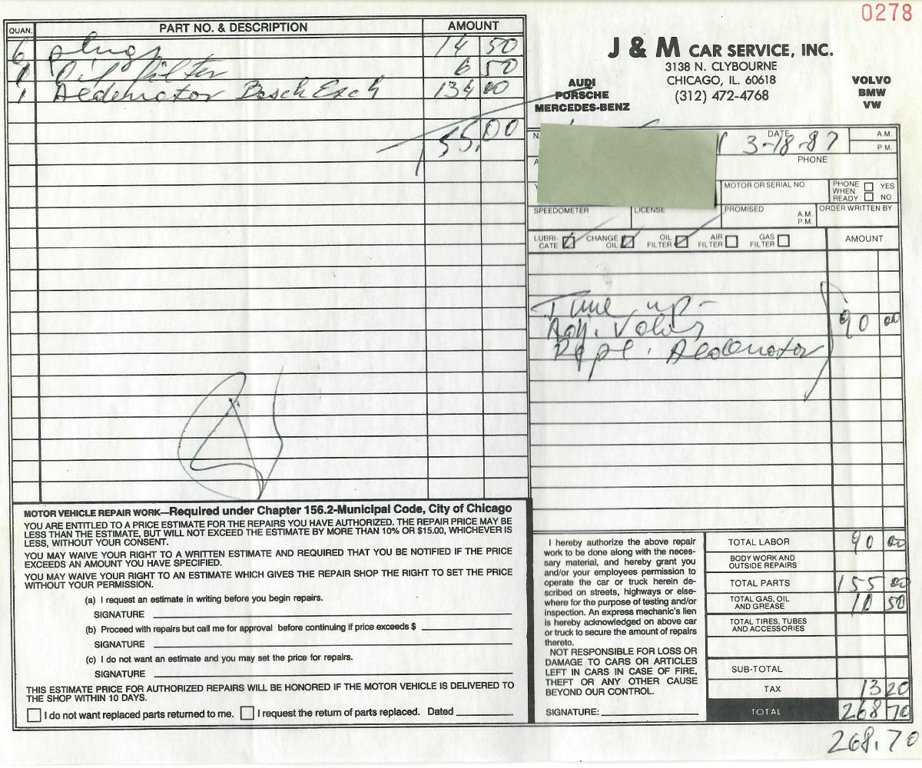 0278
QUAN. PART NO. & DESCRIPTION AMOUNT
6 plugs 14 50
1 Oil filter 6 50
1 Bosch Exch 134 00
155.00
J & M CAR SERVICE, INC.
3138 N. CLYBOURNE
CHICAGO, IL. 60618
(312) 472-4768
AUDI
PORSCHE
MERCEDES-BENZ
VOLVO
BMW
VW
DATE 3-18-87
A.M.
P.M.
PHONE
MOTOR OR SERIAL NO.
PHONE WHEN READY YES NO
SPEEDOMETER LICENSE PROMISED A.M. P.M. ORDER WRITTEN BY
LUBRI-CATE CHANGE OIL OIL FILTER AIR FILTER GAS FILTER AMOUNT
Tune up-
Adj. 90 00
Repl.
MOTOR VEHICLE REPAIR WORK—Required under Chapter 156.2-Municipal Code, City of Chicago
YOU ARE ENTITLED TO A PRICE ESTIMATE FOR THE REPAIRS YOU HAVE AUTHORIZED. THE REPAIR PRICE MAY BE
LESS THAN THE ESTIMATE, BUT WILL NOT EXCEED THE ESTIMATE BY MORE THAN 10% OR $15.00, WHICHEVER IS
LESS, WITHOUT YOUR CONSENT.
YOU MAY WAIVE YOUR RIGHT TO A WRITTEN ESTIMATE AND REQUIRED THAT YOU BE NOTIFIED IF THE PRICE
EXCEEDS AN AMOUNT YOU HAVE SPECIFIED.
YOU MAY WAIVE YOUR RIGHT TO AN ESTIMATE WHICH GIVES THE REPAIR SHOP THE RIGHT TO SET THE PRICE
WITHOUT YOUR PERMISSION.
(a) I request an estimate in writing before you begin repairs.
SIGNATURE
(b) Proceed with repairs but call me for approval before continuing if price exceeds $
SIGNATURE
(c) I do not want an estimate and you may set the price for repairs.
SIGNATURE
THIS ESTIMATE PRICE FOR AUTHORIZED REPAIRS WILL BE HONORED IF THE MOTOR VEHICLE IS DELIVERED TO
THE SHOP WITHIN 10 DAYS.
I do not want replaced parts returned to me. I request the return of parts replaced. Dated
I hereby authorize the above repair
work to be done along with the neces-
sary material, and hereby grant you
and/or your employees permission to
operate the car or truck herein de-
scribed on streets, highways or else-
where for the purpose of testing and/or
inspection. An express mechanic's lien
is hereby acknowledged on above car
or truck to secure the amount of repairs
thereto.
NOT RESPONSIBLE FOR LOSS OR
DAMAGE TO CARS OR ARTICLES
LEFT IN CARS IN CASE OF FIRE,
THEFT OR ANY OTHER CAUSE
BEYOND OUR CONTROL.
SIGNATURE:
TOTAL LABOR 90 00
BODY WORK AND OUTSIDE REPAIRS
TOTAL PARTS 155 00
TOTAL GAS, OIL AND GREASE 10 50
TOTAL TIRES, TUBES AND ACCESSORIES
SUB-TOTAL
TAX 13 20
TOTAL 268 70
268.70